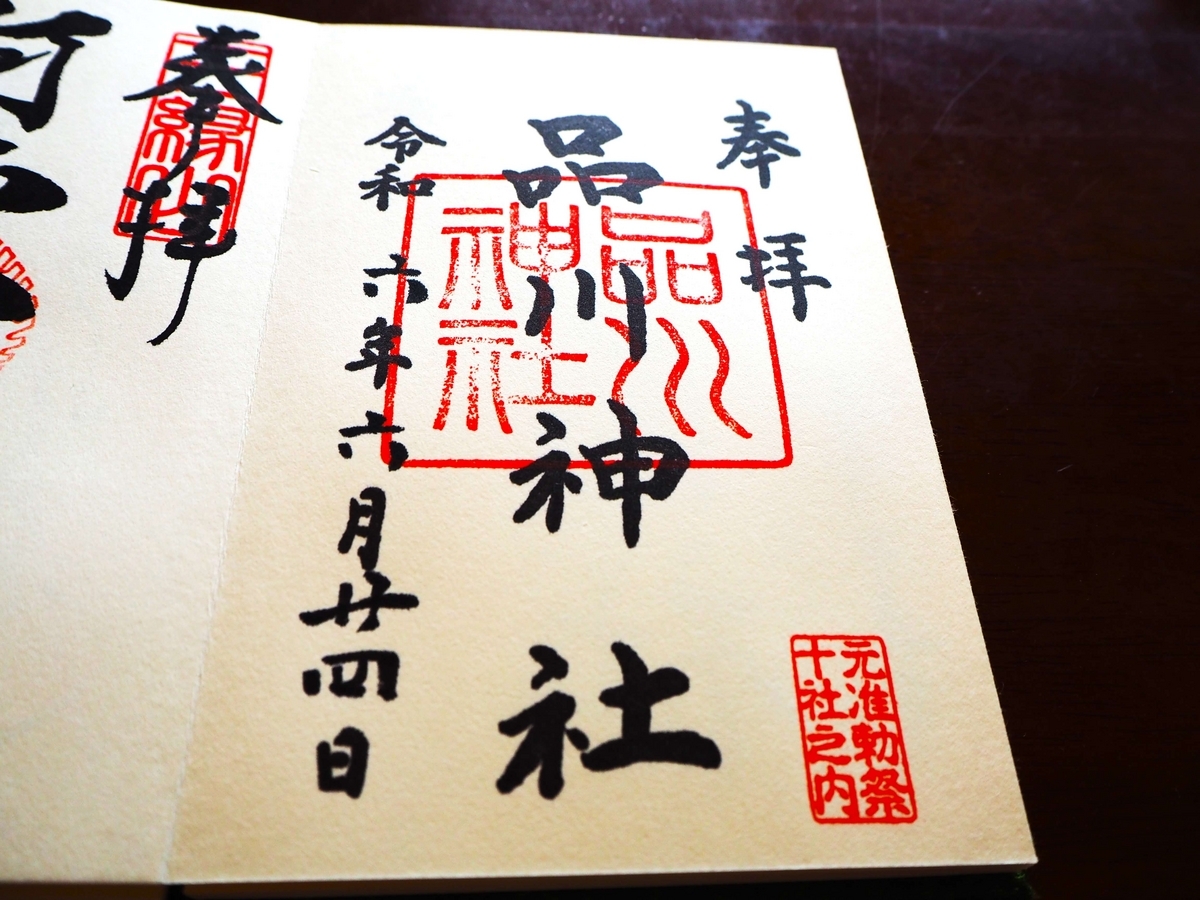 奉拝
品川神社
令和六年六月廿四日
品川
神社
元准勅祭
十社之内
奉拝